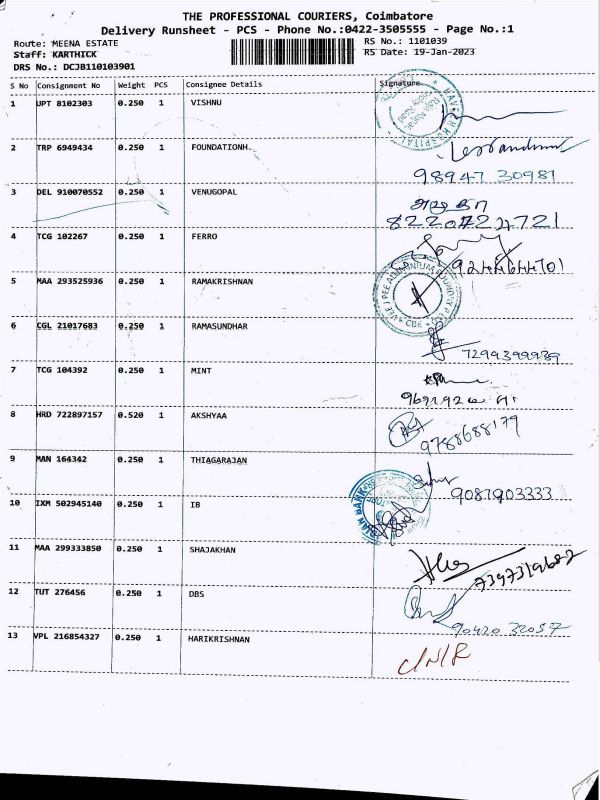 THE PROFESSIONAL COURIERS, Coimbatore
Delivery Runsheet - PCS - Phone No.:0422-3505555 - Page No.:1
Route: MEENA ESTATE
RS No.: 1101039
Staff: KARTHICK
RS Date: 19-Jan-2023
DRS No.: DCJB110103901
S No Consignment No Weight PCS Consignee Details Signature
1 UPT 8102303 0.250 1 VISHNU
2 TRP 6949434 0.250 1 FOUNDATIONH.
98947 30981
3 DEL 910070552 0.250 1 VENUGOPAL
8220424721
4 TCG 102267 0.250 1 FERRO
9244644701
5 MAA 293525936 0.250 1 RAMAKRISHNAN
6 CGL 21017683 0.250 1 RAMASUNDHAR
7299399939
7 TCG 104392 0.250 1 MINT
8 HRD 722897157 0.520 1 AKSHYAA
9788688179
9 MAN 164342 0.250 1 THIAGARAJAN
9087903333
10 IXM 502945140 0.250 1 IB
11 MAA 299333850 0.250 1 SHAJAKHAN
7397319682
12 TUT 276456 0.250 1 DBS
90420 32057
13 VPL 216854327 0.250 1 HARIKRISHNAN
C/N/R